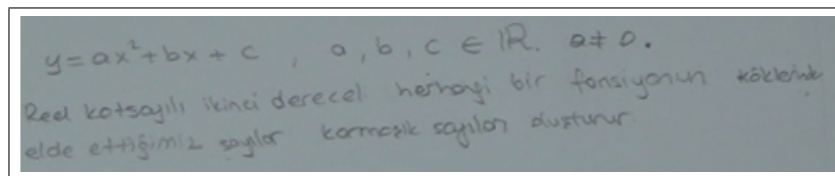 y=ax²+bx+c , a, b, c ∈ IR. a≠0.
Reel katsayılı ikinci derecel herhangi bir fonsiyonun köklerinde
elde ettiğimiz sayılar karmaşık sayıları oluşturur